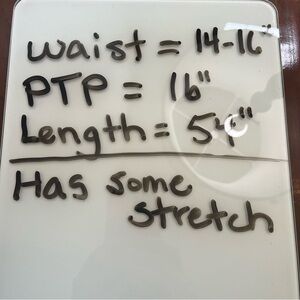 waist = 14-16"
PTP = 16"
Length = 54"
Has some
stretch